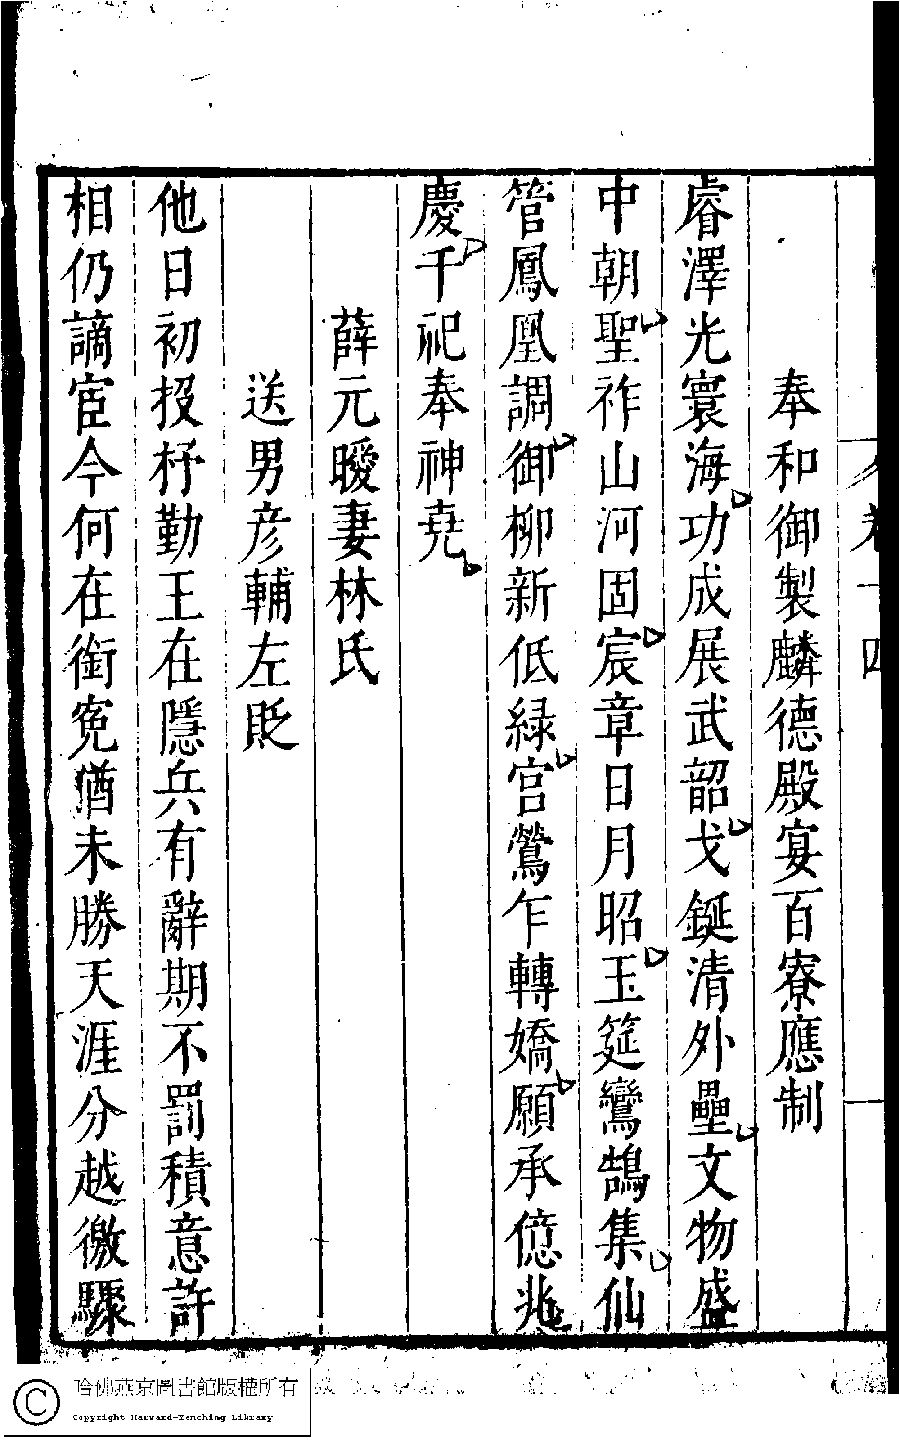 卷十四
奉和御製麟德殿宴百寮應制
睿澤光寰海功成展武韶戈鋋清外壘文物盛
中朝聖祚山河固宸章日月昭玉筵鸞鵠集仙
管鳳凰調御柳新低綠宮鶯乍轉嬌願承億兆
慶千祀奉神堯
薛元曖妻林氏
送男彥輔左貶
他日初投杼勤王在隱兵有辭期不罰積意許
相仍謫宦今何在銜寃猶未勝天涯分越徼驟
哈佛燕京圖書館版權所有
Copyright Harvard-Yenching Library